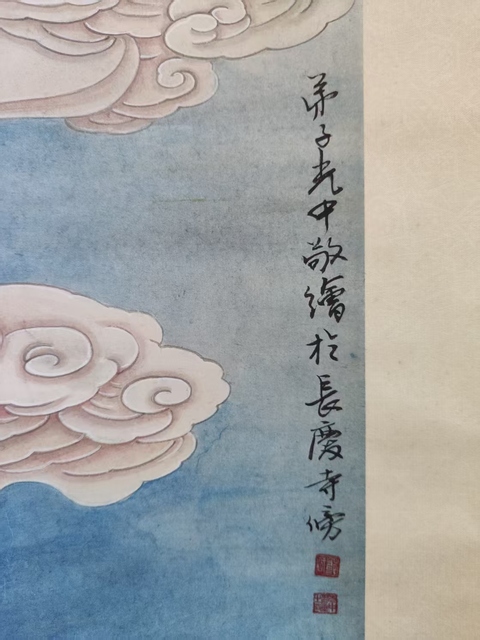 弟子光中敬繪於長慶寺傍